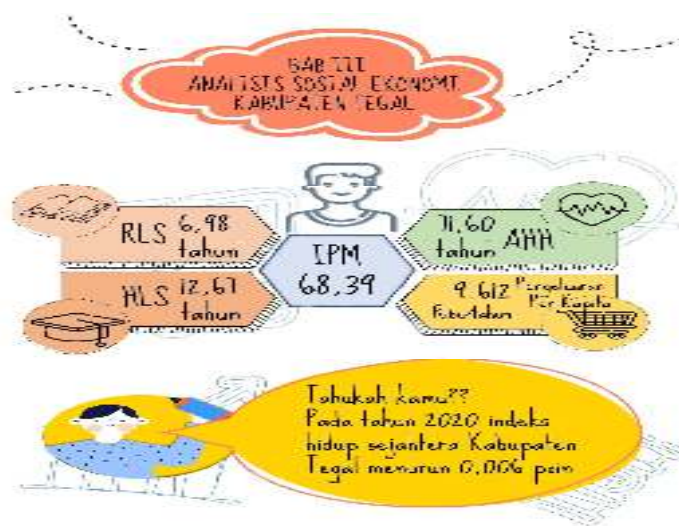 BAB III
ANALISIS SOSIAL EKONOMI
KABUPATEN TEGAL
RLS 6,98
tahun
HLS 12,67
tahun
IPM
68,39
71,60
tahun AHH
9.612 Pengeluaran
Per Kapita
Tahukah kamu??
Pada tahun 2020 indeks
hidup sejahtera Kabupaten
Tegal menurun 0,006 poin